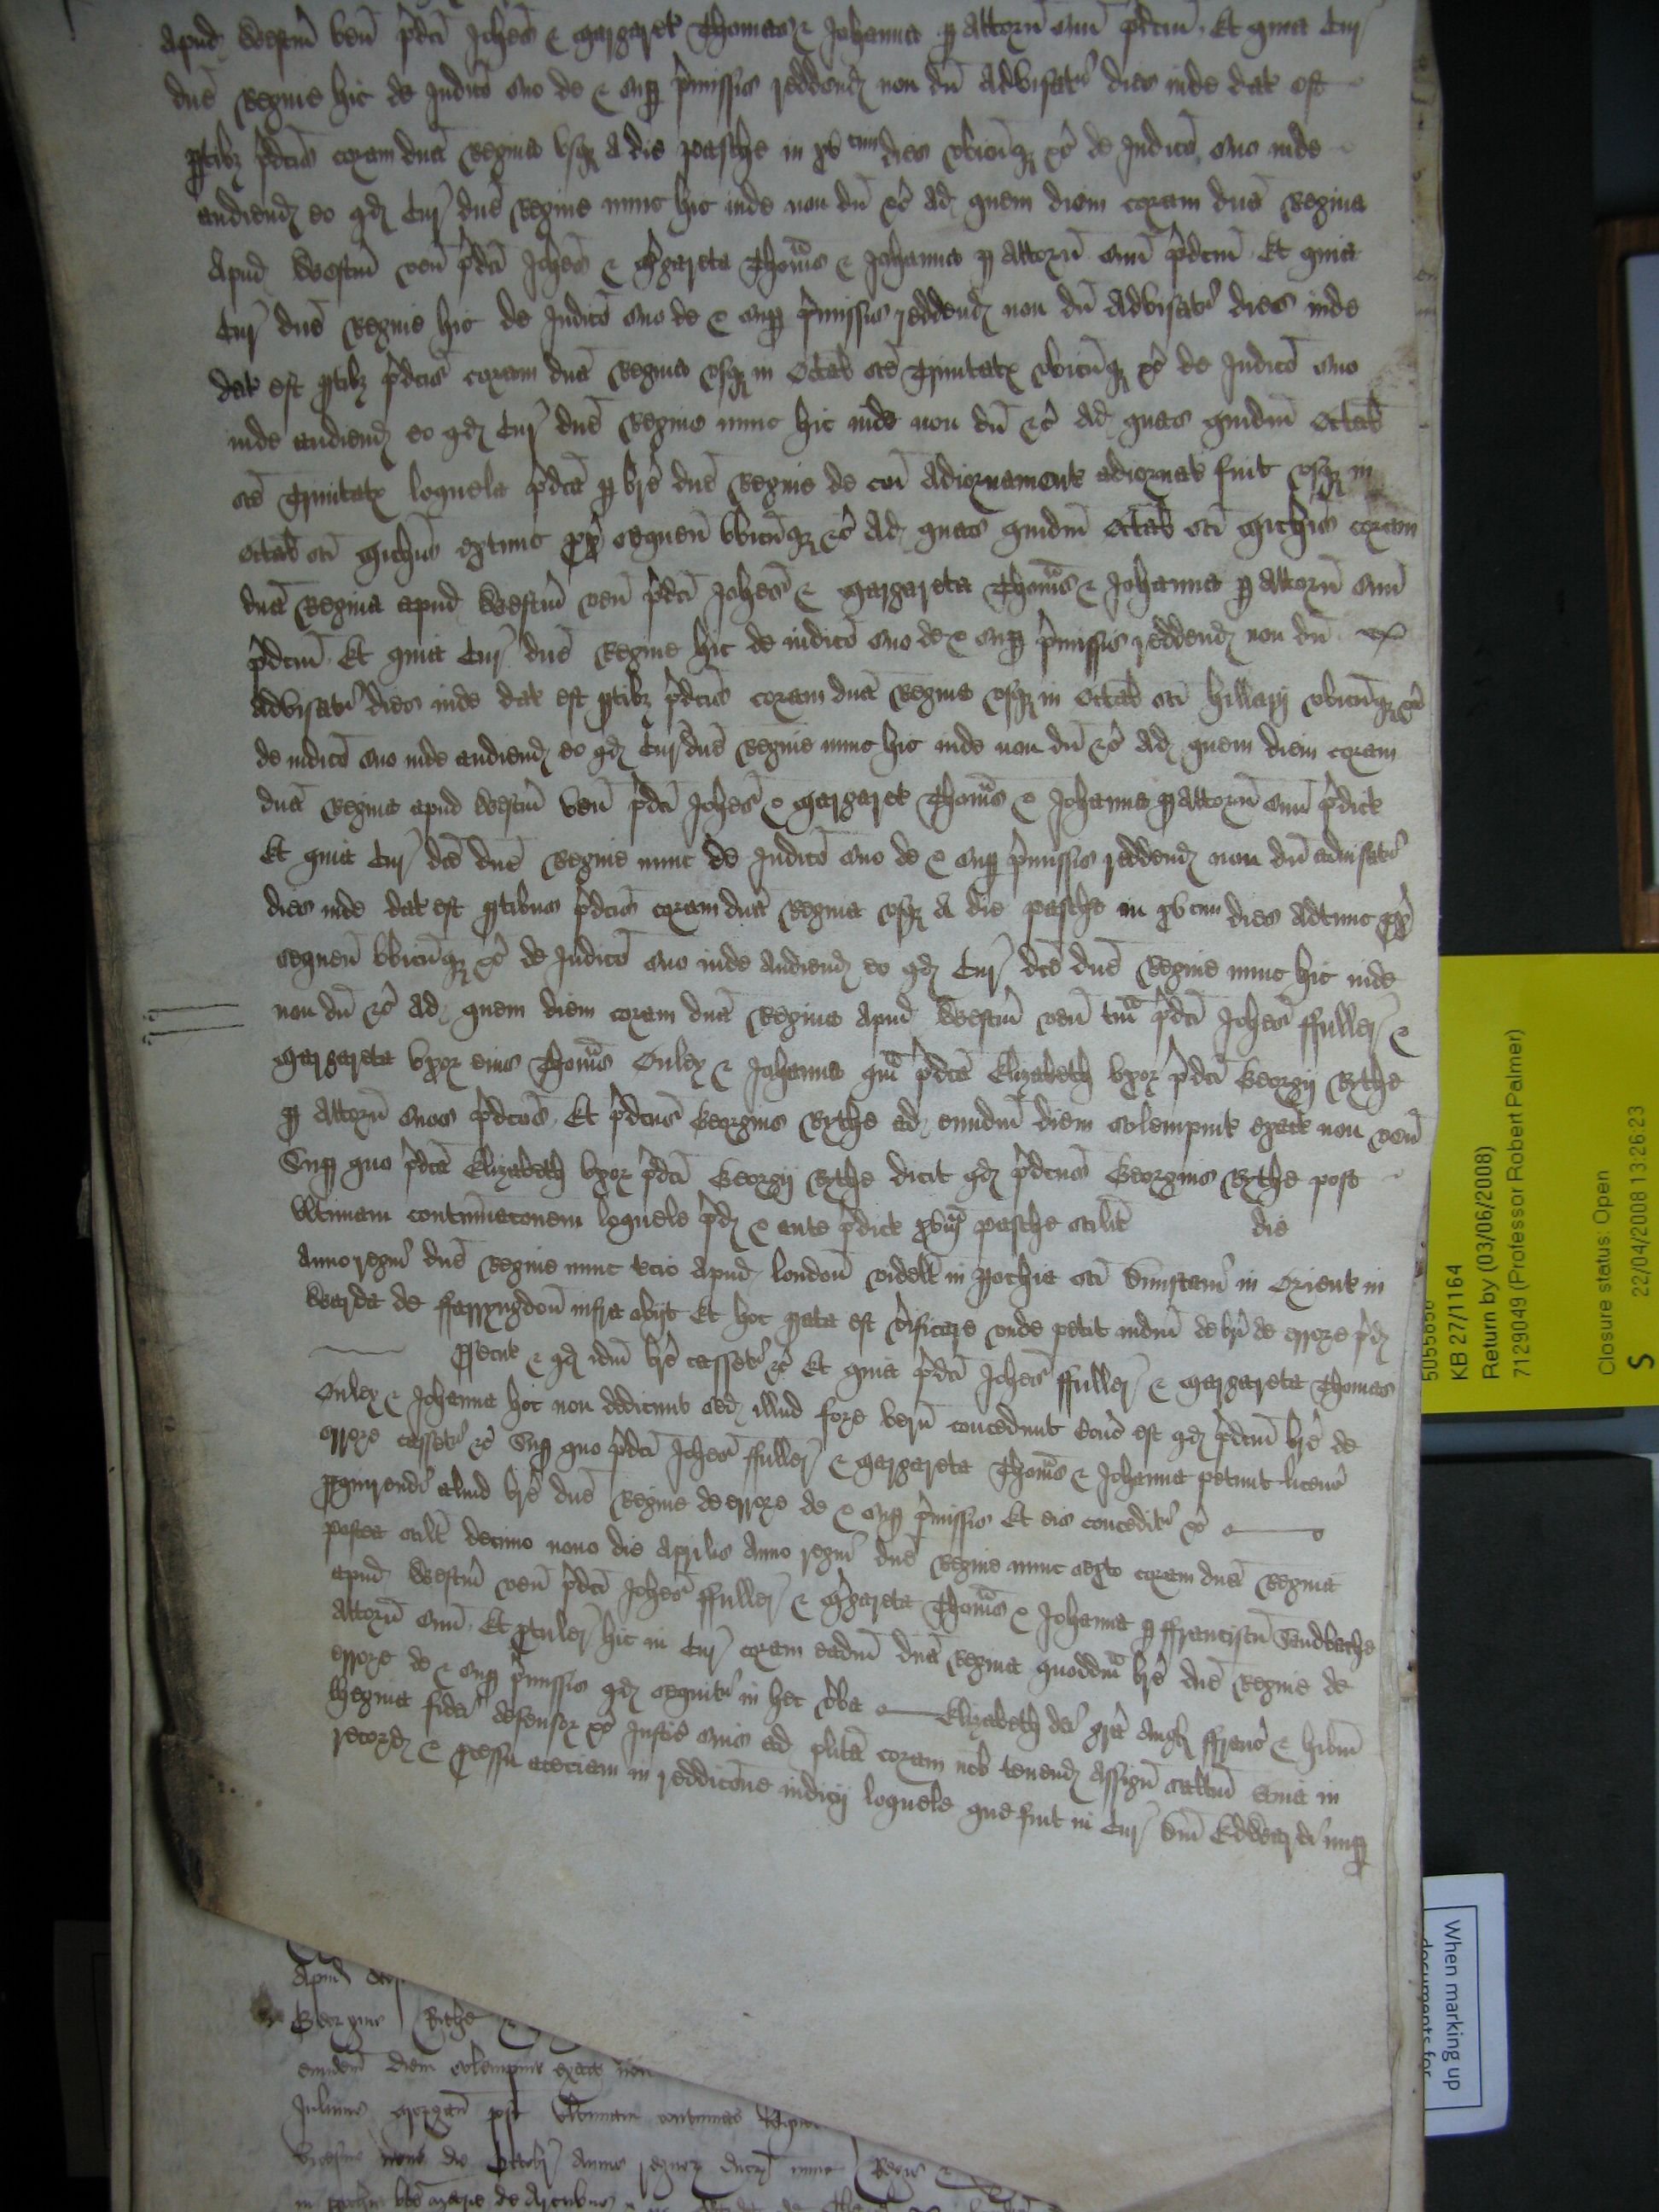 apud Westm̄ ven̄ p̄dc̄i Joh̄es & Margaret Thomas & Johanna ꝑ attorn̄ suū p̄dcm̄ Et quia Cur̄
dn̄e Regine hic de Judic̄o suo de & suꝑ p̄missis reddend̄ non dū advisat̄ dies inde dat est
ꝑtibꝫ p̄dcis coram dn̄a Regina usqꝫ a die pasche in xv cim dies ubicūqꝫ &c̄ de Judic̄o suo inde
audiend̄ eo qd̄ Cur̄ dn̄e Regine nunc hic inde non dū &c̄ Ad quem diem coram dn̄a Regina
apud Westm̄ ven̄ p̄dc̄i Joh̄es & M̄gareta Thom̄s & Johanna ꝑ attorn̄ suū p̄dcm̄ Et quia
Cur̄ dn̄e Regine hic de Judic̄o suo de & suꝑ p̄missis reddend̄ non dū advisat̄ dies inde
dat est ꝑtibꝫ p̄dcis coram dn̄a Regina usqꝫ in Octab̄ sc̄e Trinitatꝭ ubicūqꝫ &c̄ de Judic̄o suo
inde audiend̄ eo qd̄ Cur̄ dn̄e Regine nunc hic inde non dū &c̄ Ad quas quidm̄ Octab̄
sc̄e Trinitatꝭ loquela p̄dc̄a ꝑ br̄e dn̄e Regine de cōi Adiornament adiornat fuit usqꝫ in
octab̄ sc̄i Mich̄is extunc ꝓx̄ sequen̄ ubicūqꝫ &c̄ Ad quas quidm̄ Octab̄ sc̄i Mich̄is coram
dn̄a Regina apud Westm̄ ven̄ p̄dc̄i Joh̄es & Margareta Thom̄s & Johanna ꝑ attorn̄ suū
p̄dcm̄ Et quia Cur̄ dn̄e Regine hic de iudic̄o suo de & suꝑ p̄missis reddend̄ non dū
advisat̄ dies inde dat est ꝑtibꝫ p̄dcis coram dn̄a Regina usqꝫ in Octab̄ sc̄i Hillarij ubicūqꝫ &c̄
de iudic̄o suo inde audiend̄ eo qd̄ Cur̄ dn̄e Regine nunc hic inde non dū &c̄ Ad quem diem coram
dn̄a Regina apud Westm̄ ven̄ p̄dc̄i Joh̄es & Margaret Thom̄s & Johanna ꝑ attorn̄ suū p̄dict
Et quia Cur̄ dc̄e dn̄e Regine nunc de Judic̄o suo de & suꝑ p̄missis reddend̄ non dū advisat̄
dies inde dat est ꝑtibus p̄dcis coram dn̄a Regina usqꝫ a die pasche in xv cim dies adtunc ꝓx̄
sequen̄ ubicūqꝫ &c̄ de Judic̄o suo inde audiend̄ eo qd̄ Cur̄ dc̄e dn̄e Regine nunc hic inde
non dū &c̄ Ad quem diem coram dn̄a Regina apud Westm̄ ven̄ tam̄ p̄dc̄i Joh̄es ffuller &
Margareta uxor eius Thom̄s Onley & Johanna qm̄ p̄dc̄a Elizabeth uxor p̄dc̄i Georgij Rythe
ꝑ attorn̄ suos p̄dcos Et p̄dcus Georgius Rythe ad eundm̄ diem solempnit exact non ven̄
Suꝑ quo p̄dc̄a Elizabeth uxor p̄dc̄i Georgij Rythe dicit qd̄ p̄dcus Georgius Rythe post
ultimam continuac̄onem loquele p̄d̄ & ante p̄dict xvᵃᵐ pasche scilt̄ die
anno regni dn̄e Regine nunc tcio apud london̄ videlt̄ in ꝑochia sc̄i Dunstani in Orient in
Warda de ffaryngdon̄ infra obijt Et hoc ꝑata est v̄ificare unde petit iudm̄ de br̄i de errore p̄d̄
ꝓsecut & qd̄ idm̄ br̄e cassetr̄ &c̄ Et quia p̄dc̄i Joh̄es ffuller & Margareta Thomas
Onley & Johanna hoc non dedicunt sed illud fore verū concedunt Cons̄ est qd̄ p̄dcm̄ br̄e de
errore cassetr̄ &c̄ Suꝑ quo p̄dc̄i Joh̄es ffuller & Margareta Thom̄s & Johanna petunt licenc̄
ꝑquirendi aliud br̄e dn̄e Regine de errore de & suꝑ p̄missis Et eis conceditr̄ &c̄
postea scilt̄ decimo nono die Aprilis Anno regni dn̄e Regine nunc sexto coram dn̄a Regina
apud Westm̄ ven̄ p̄dc̄i Joh̄es ffuller & M̄gareta Thom̄s & Johanna ꝑ ffranciscū Sandbache
attorn̄ suū Et ꝓtuler̄ hic in Cur̄ coram eadm̄ dn̄a Regina quoddm̄ br̄e dn̄e Regine de
errore de & suꝑ p̄missis qd̄ sequitr̄ in hec v̄ba Elizabeth dei gr̄a Angl̄ ffranc̄ & Hib̄n
Regina fidei defensor &c̄ Justic̄ suis ad pl̄ita coram nob̄ tenend̄ assign̄ sal̄tm̄ Quia in
record̄ & ꝓcessu aceciam in reddic̄one iudicij loquele que fuit in Cur̄ dn̄i Edwardi nuꝑ
apud
Georgius Rithe
eundem diem solempnit exact non
Julius Morgan̄ post ultimam continuac̄
vicesimo nono die Octobr̄ Anno regnor̄ dictor̄ nunc Regis &
in ꝑochia bt̄e marie de Arcubus
KB 27/1164
Return by (03/06/2008)
7129049 (Professor Robert Palmer)
Closure status: Open
S 22/04/2008 13:26:23
When marking up
documents for